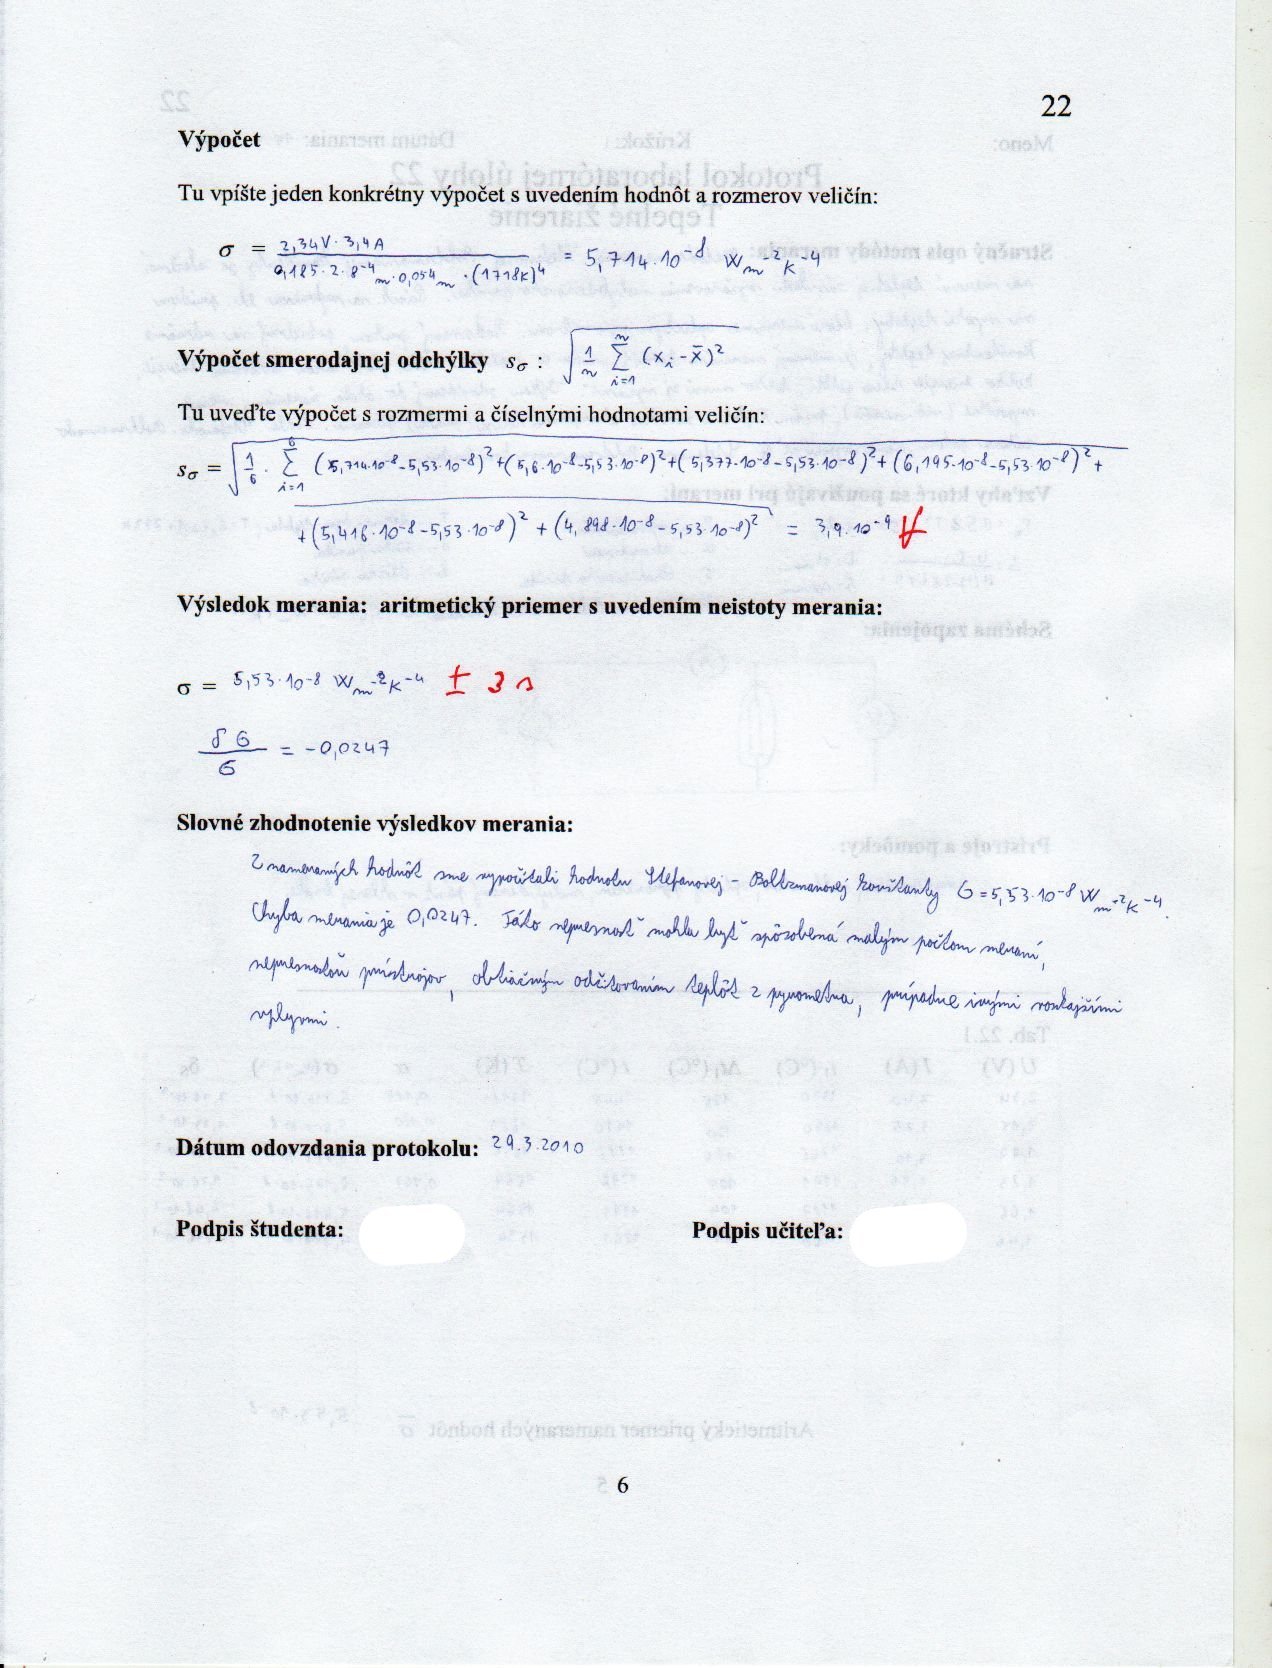 22
Výpočet
Tu vpíšte jeden konkrétny výpočet s uvedením hodnôt a rozmerov veličín:
σ = 2,34V·3,4A / 0,185·2·8⁻⁴m·0,054m·(1718K)⁴ = 5,714·10⁻⁸ Wm⁻²K⁻⁴
Výpočet smerodajnej odchýlky s_σ : √(1/n Σ_{i=1}^{n} (x_i - x̄)²)
Tu uveďte výpočet s rozmermi a číselnými hodnotami veličín:
s_σ = √(1/6 · Σ_{i=1}^{6} (5,714·10⁻⁸-5,53·10⁻⁸)²+(5,6·10⁻⁸-5,53·10⁻⁸)²+(5,377·10⁻⁸-5,53·10⁻⁸)²+(6,195·10⁻⁸-5,53·10⁻⁸)²+
+(5,416·10⁻⁸-5,53·10⁻⁸)²+(4,898·10⁻⁸-5,53·10⁻⁸)² = 3,9·10⁻⁹
Výsledok merania: aritmetický priemer s uvedením neistoty merania:
σ = 5,53·10⁻⁸ Wm⁻²K⁻⁴ ± 3 s
δσ/σ = -0,0247
Slovné zhodnotenie výsledkov merania:
Z nameraných hodnôt sme vypočítali hodnotu Stefanovej - Boltzmanovej konštanty σ=5,53·10⁻⁸ Wm⁻²K⁻⁴.
Chyba merania je 0,0247. Táto nepresnosť mohla byť spôsobená malým počtom meraní,
nepresnosťou prístrojov, obtiačným odčítovaním teplôt z pyrometra, prípadne inými vonkajšími
vplyvmi.
Dátum odovzdania protokolu: 29.3.2010
Podpis študenta: Podpis učiteľa:
6